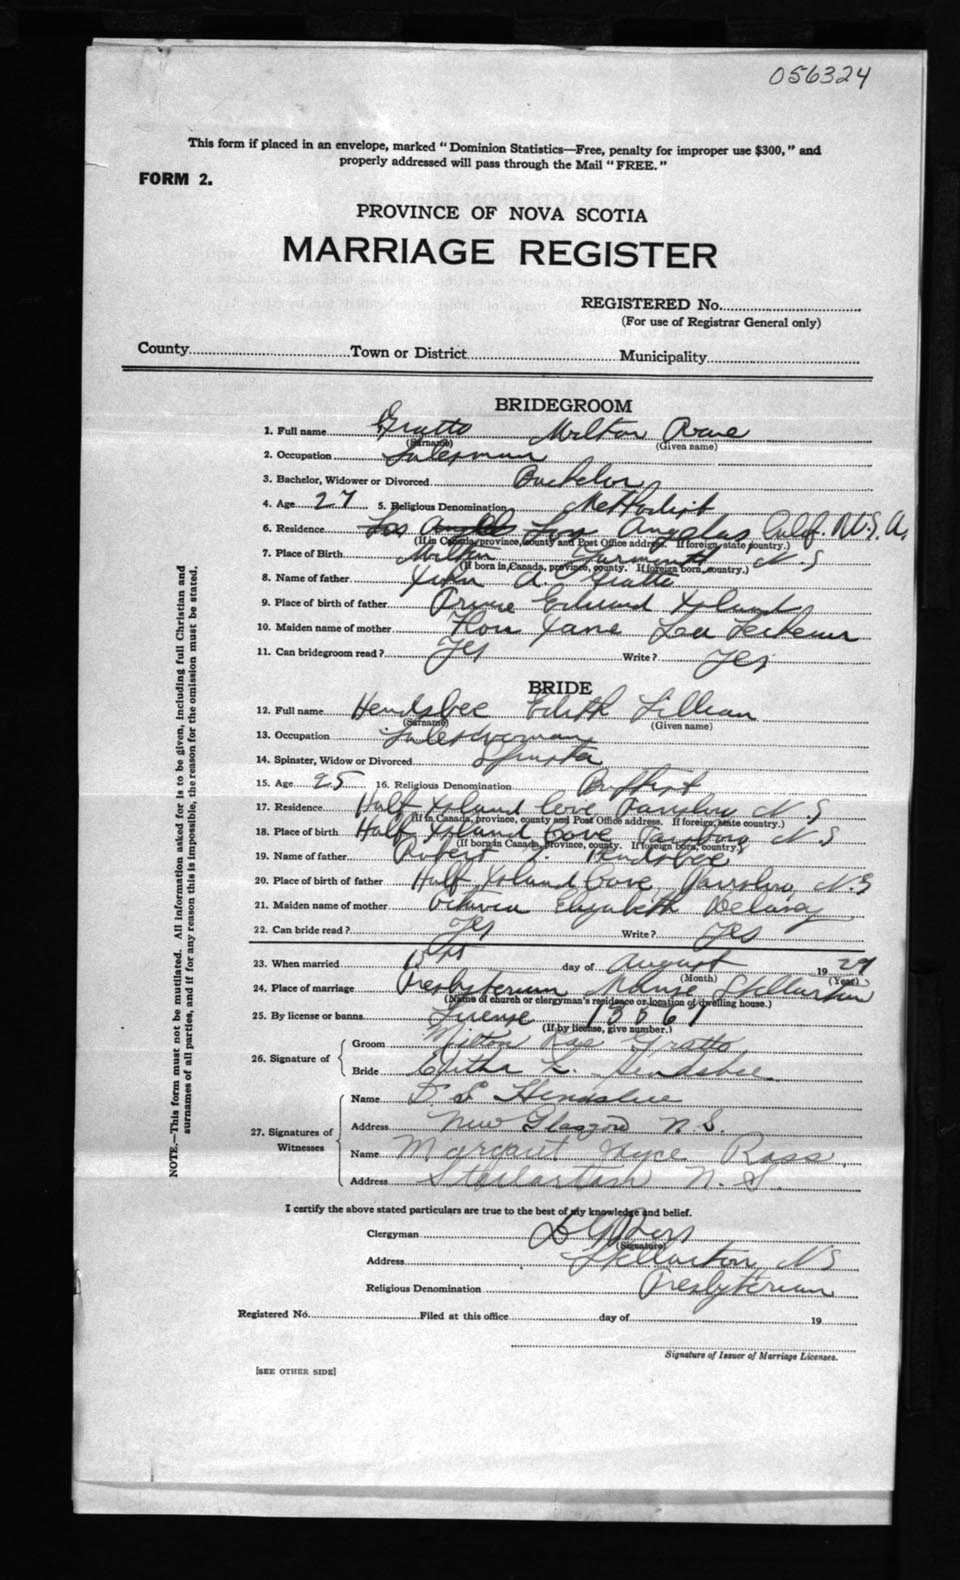 056324
This form if placed in an envelope, marked "Dominion Statistics—Free, penalty for improper use $300," and
properly addressed will pass through the Mail "FREE."
FORM 2.
PROVINCE OF NOVA SCOTIA
MARRIAGE REGISTER
REGISTERED No.
(For use of Registrar General only)
County Town or District Municipality
BRIDEGROOM
1. Full name Gratto Milton
(Surname) (Given name)
2. Occupation Salesman
3. Bachelor, Widower or Divorced Bachelor
4. Age 27 5. Religious Denomination Methodist
6. Residence Los Angeles Los Angelas Calf. U.S.A.
(If in Canada, province, county and Post Office address. If foreign, state country.)
7. Place of Birth Milton Yarmouth N.S
(If born in Canada, province, county. If foreign born, country.)
8. Name of father John A Gratto
9. Place of birth of father Prince Edward Island
10. Maiden name of mother Jane
11. Can bridegroom read? Yes Write? Yes
BRIDE
12. Full name Hendsbee Edith Lillian
(Surname) (Given name)
13. Occupation Saleswoman
14. Spinster, Widow or Divorced Spinster
15. Age 25 16. Religious Denomination Baptist
17. Residence Half Island Cove N.S
(If in Canada, province, county and Post Office address. If foreign, state country.)
18. Place of birth Half Island Cove N.S
(If born in Canada, province, county. If foreign born, country.)
19. Name of father Robert Hendsbee
20. Place of birth of father Half Island Cove N.S
21. Maiden name of mother Octavia Elizabeth
22. Can bride read? Yes Write? Yes
23. When married day of August 19 29
(Month) (Year)
24. Place of marriage Presbyterian Manse Stellarton
(Name of church or clergyman's residence or location of dwelling house.)
25. By license or banns License 13561
(If by license, give number.)
26. Signature of
Groom Milton Rae Gratto
Bride Editha L. Hendsbee
27. Signatures of Witnesses
Name Hendsbee
Address New Glasgow N.S.
Name Margaret Joyce Ross
Address N.S.
I certify the above stated particulars are true to the best of my knowledge and belief.
Clergyman
(Signature)
Address Stellarton N S
Religious Denomination Presbyterian
Registered No. Filed at this office day of 19
Signature of Issuer of Marriage Licenses.
[SEE OTHER SIDE]
NOTE.—This form must not be mutilated. All information asked for is to be given, including full Christian and
surnames of all parties, and if for any reason this is impossible, the reason for the omission must be stated.